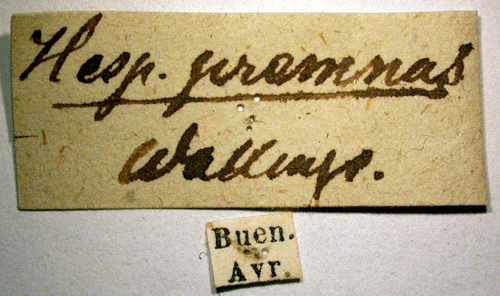 Hesp. premnas
Wallengr.
Buen.
Ayr.